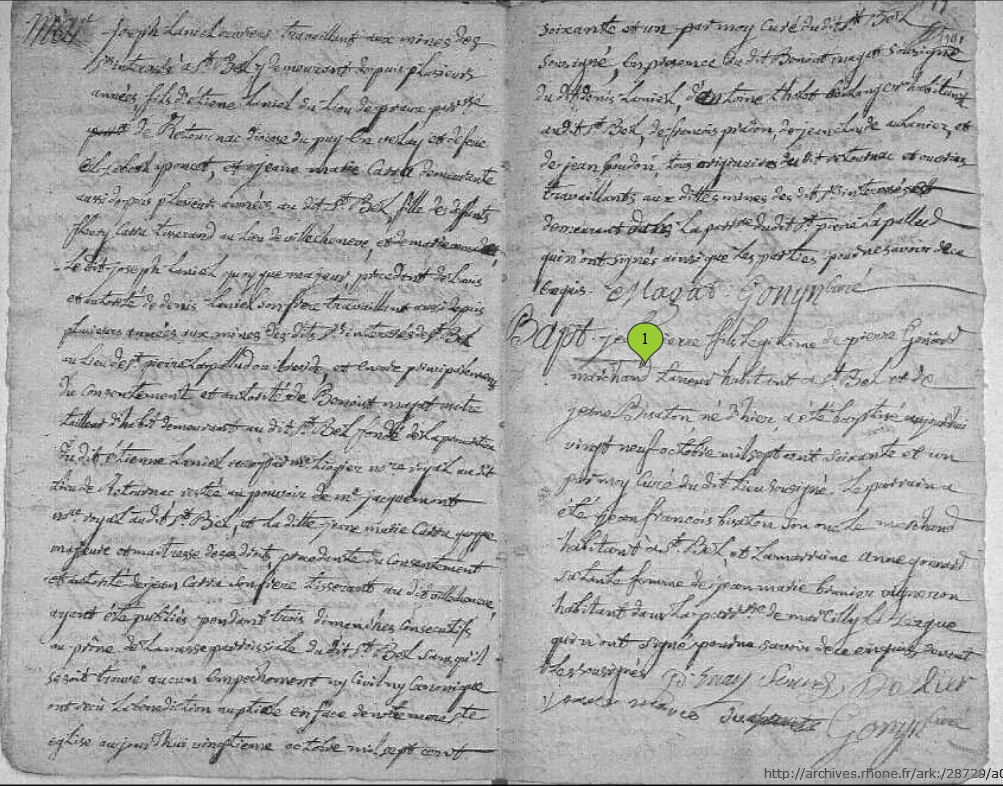 Mar
Joseph Laniel ouvriers travaillant aux mines des
Srs interessés à St Bel y demeurant depuis plusieurs
années fils d'étiene Laniel du Lieu de paroisse
de Retournac diocese du puy En velay et de feue
Elisabeth poncet, et jeane marie Carra demeurante
aussi depuis plusieurs années au dit St Bel fille des deffunts
fleury Carra tisserand au Lieu de villecheneve, et de marie
Le dit joseph Laniel quoy que majeur, procedant de Lavis
et autorité de denis Laniel son frere travaillant aussi depuis
plusieurs années aux mines des dits Srs interessés de St Bel
au Lieu de St pierre La pallud ou il reside, et encore principalement
du Consentement et autorité de Benoit magat maitre
tailleur d'habit demeurant au dit St Bel fondé de La procuration
du dit étienne Laniel par me Liogier nore royal au dit
Lieu de Retournac restée au pouvoir de me jacquemont
nore royal au dit St Bel, et La ditte jeane marie Carra quoyque
majeure et maitresse de ses droits, procedante du Consentement
et autorité de jean Carra son frere tisserant au dit villecheneve
ayant été publiés pendant trois dimanches Consecutifs
au prône de La messe parroissiale du dit St Bel sans qu'il
se soit trouvé aucun Empechement ny Civil ny Canonique
ont reçu La benediction nuptiale en face de notre mere Ste
église aujourd'hui vingtieme octobre mil sept cent
soixante et un par moy Curé du dit St Bel
sousigné, En presence du dit Benoit magat sousigné
du dit denis Laniel, d'antoine habitant
au dit St Bel, de francois, de jean claude, et
de jean, tous originaires du dit retournac et ouvriers
travaillants aux dittes mines des dit Srs interessés et
demeurant dans La parrsse du dit St piere La pallud
qui n'ont signés ainsi que Les parties pour ne savoir de ce
Enquis. Magat Gonyn Curé
Bapt jean pierre fils Legitime de pierre
1
marchand taneur habitant a St Bel et de
jeane Bisaton né d'hier a été baptisé aujourd'hui
vingt neuf octobre mil sept cent soixante et un
par moy Curé du dit Lieu sousigné. Le parrain a
été jean francois bisaton son oncle marchand
habitant à St Bel et La marraine anne
femme de jean marie vigneron
habitant dans La parrsse de marcilly
qui n'ont signé pour ne savoir de ce enquis devant
Les sousignés
Gonyn Curé
http://archives.rhone.fr/ark:/28729/a0